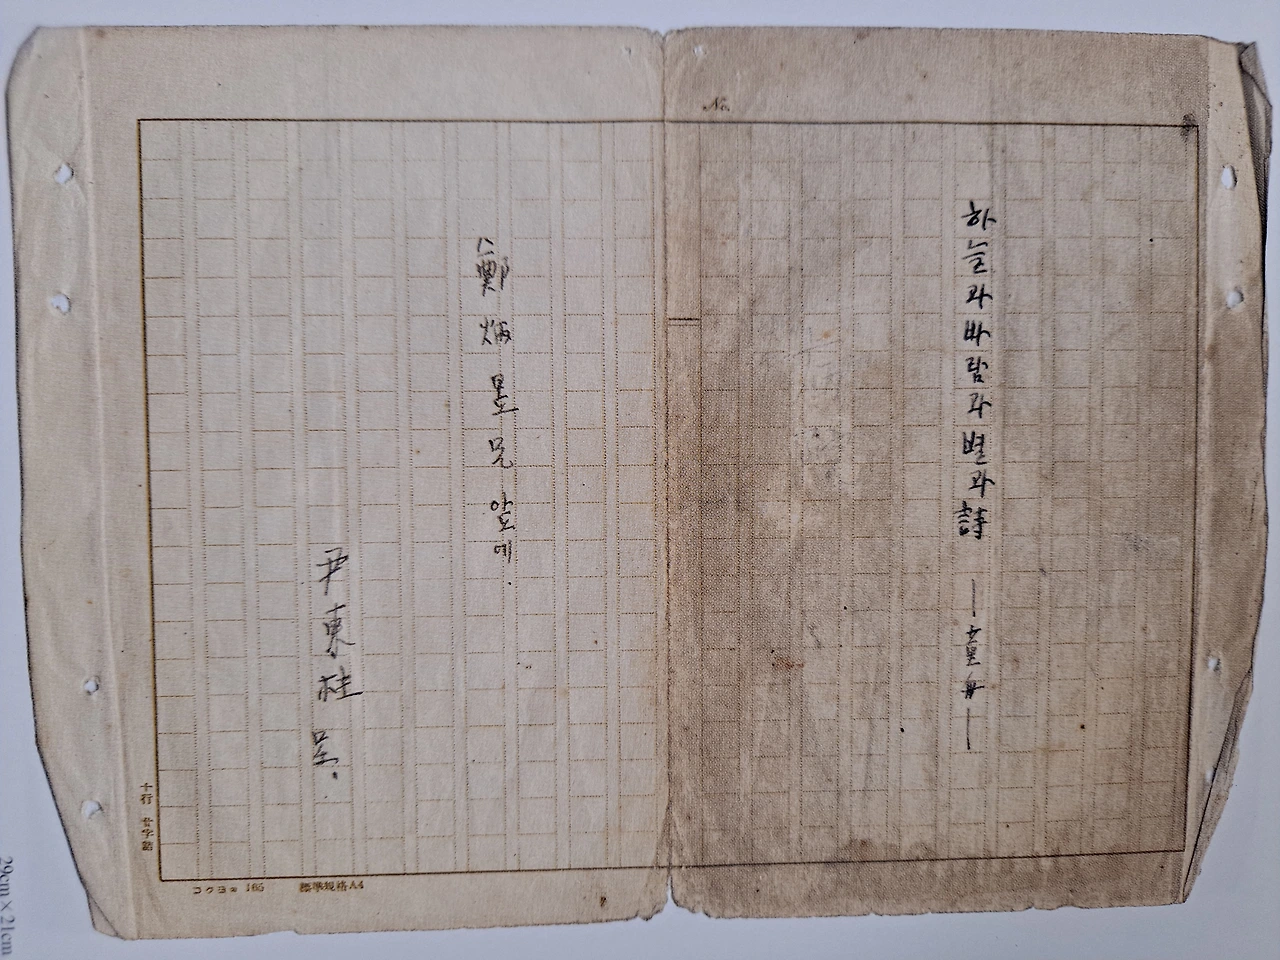 No.
하늘과바람과별과詩 —童舟—
鄭炳昱兄 앞에.
尹東柱 呈.
十行 廿字詰
標準規格A4
29cm×21cm